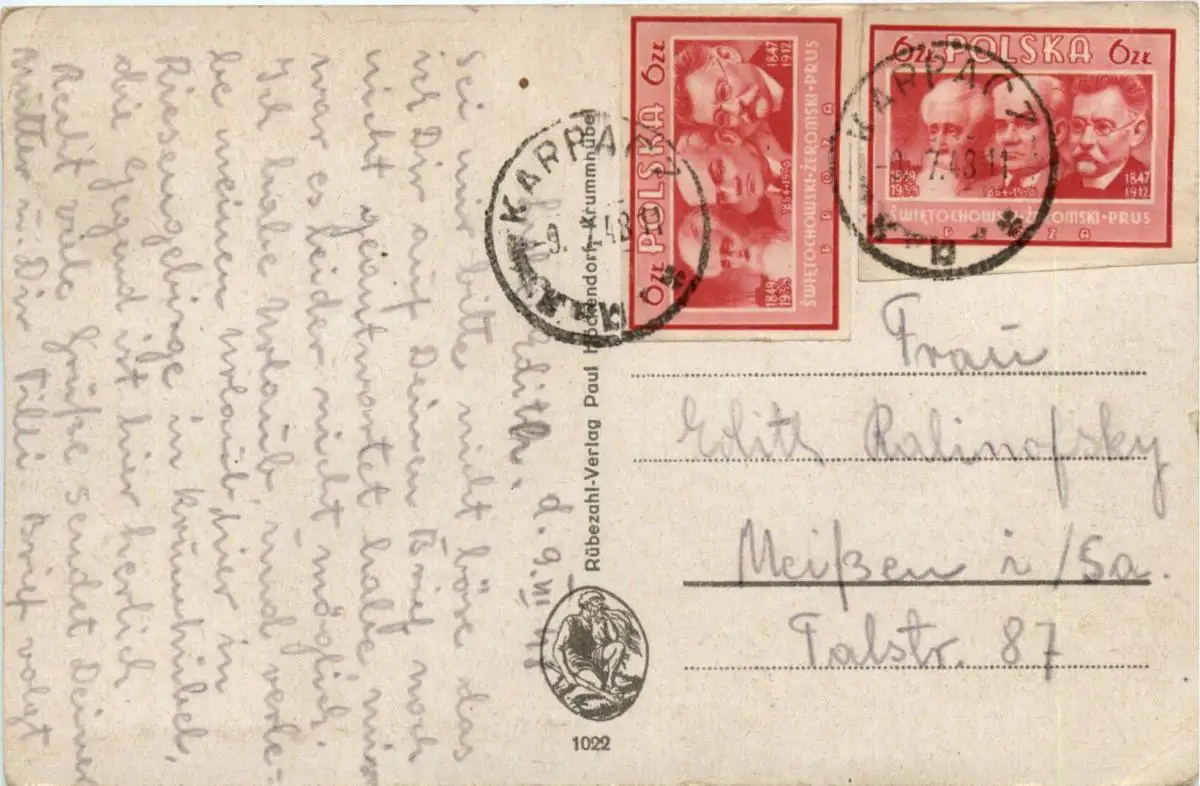 d. 9.VII 48
Edith.
Sei mir bitte nicht böse das
ich Dir auf Deinen Brief noch
nicht geantwortet habe
war es leider nicht möglich.
Ich habe Urlaub, und verle-
be meinen Urlaub hier in
Riesengebirge in Krummhübel,
die Gegend ist hier herlich
Recht viele Grüße sendet Deiner
Mutter u. Dir Tilli Brief volgt
Rübezahl-Verlag Paul Höckendorf, Krummhübel
1022
6 ZŁ POLSKA 6 ZŁ
1849 1938
1864-1925
1847 1912
ŚWIĘTOCHOWSKI·ŻEROMSKI·PRUS
PROZA
KARPACZ
9. 7.48 11
6 ZŁ POLSKA 6 ZŁ
1849 1938
1864-1925
1847 1912
ŚWIĘTOCHOWSKI·ŻEROMSKI·PRUS
PROZA
KARPACZ
-9. 7.48 11
Frau
Edith Kalinofsky
Meißen i/Sa.
Talstr. 87